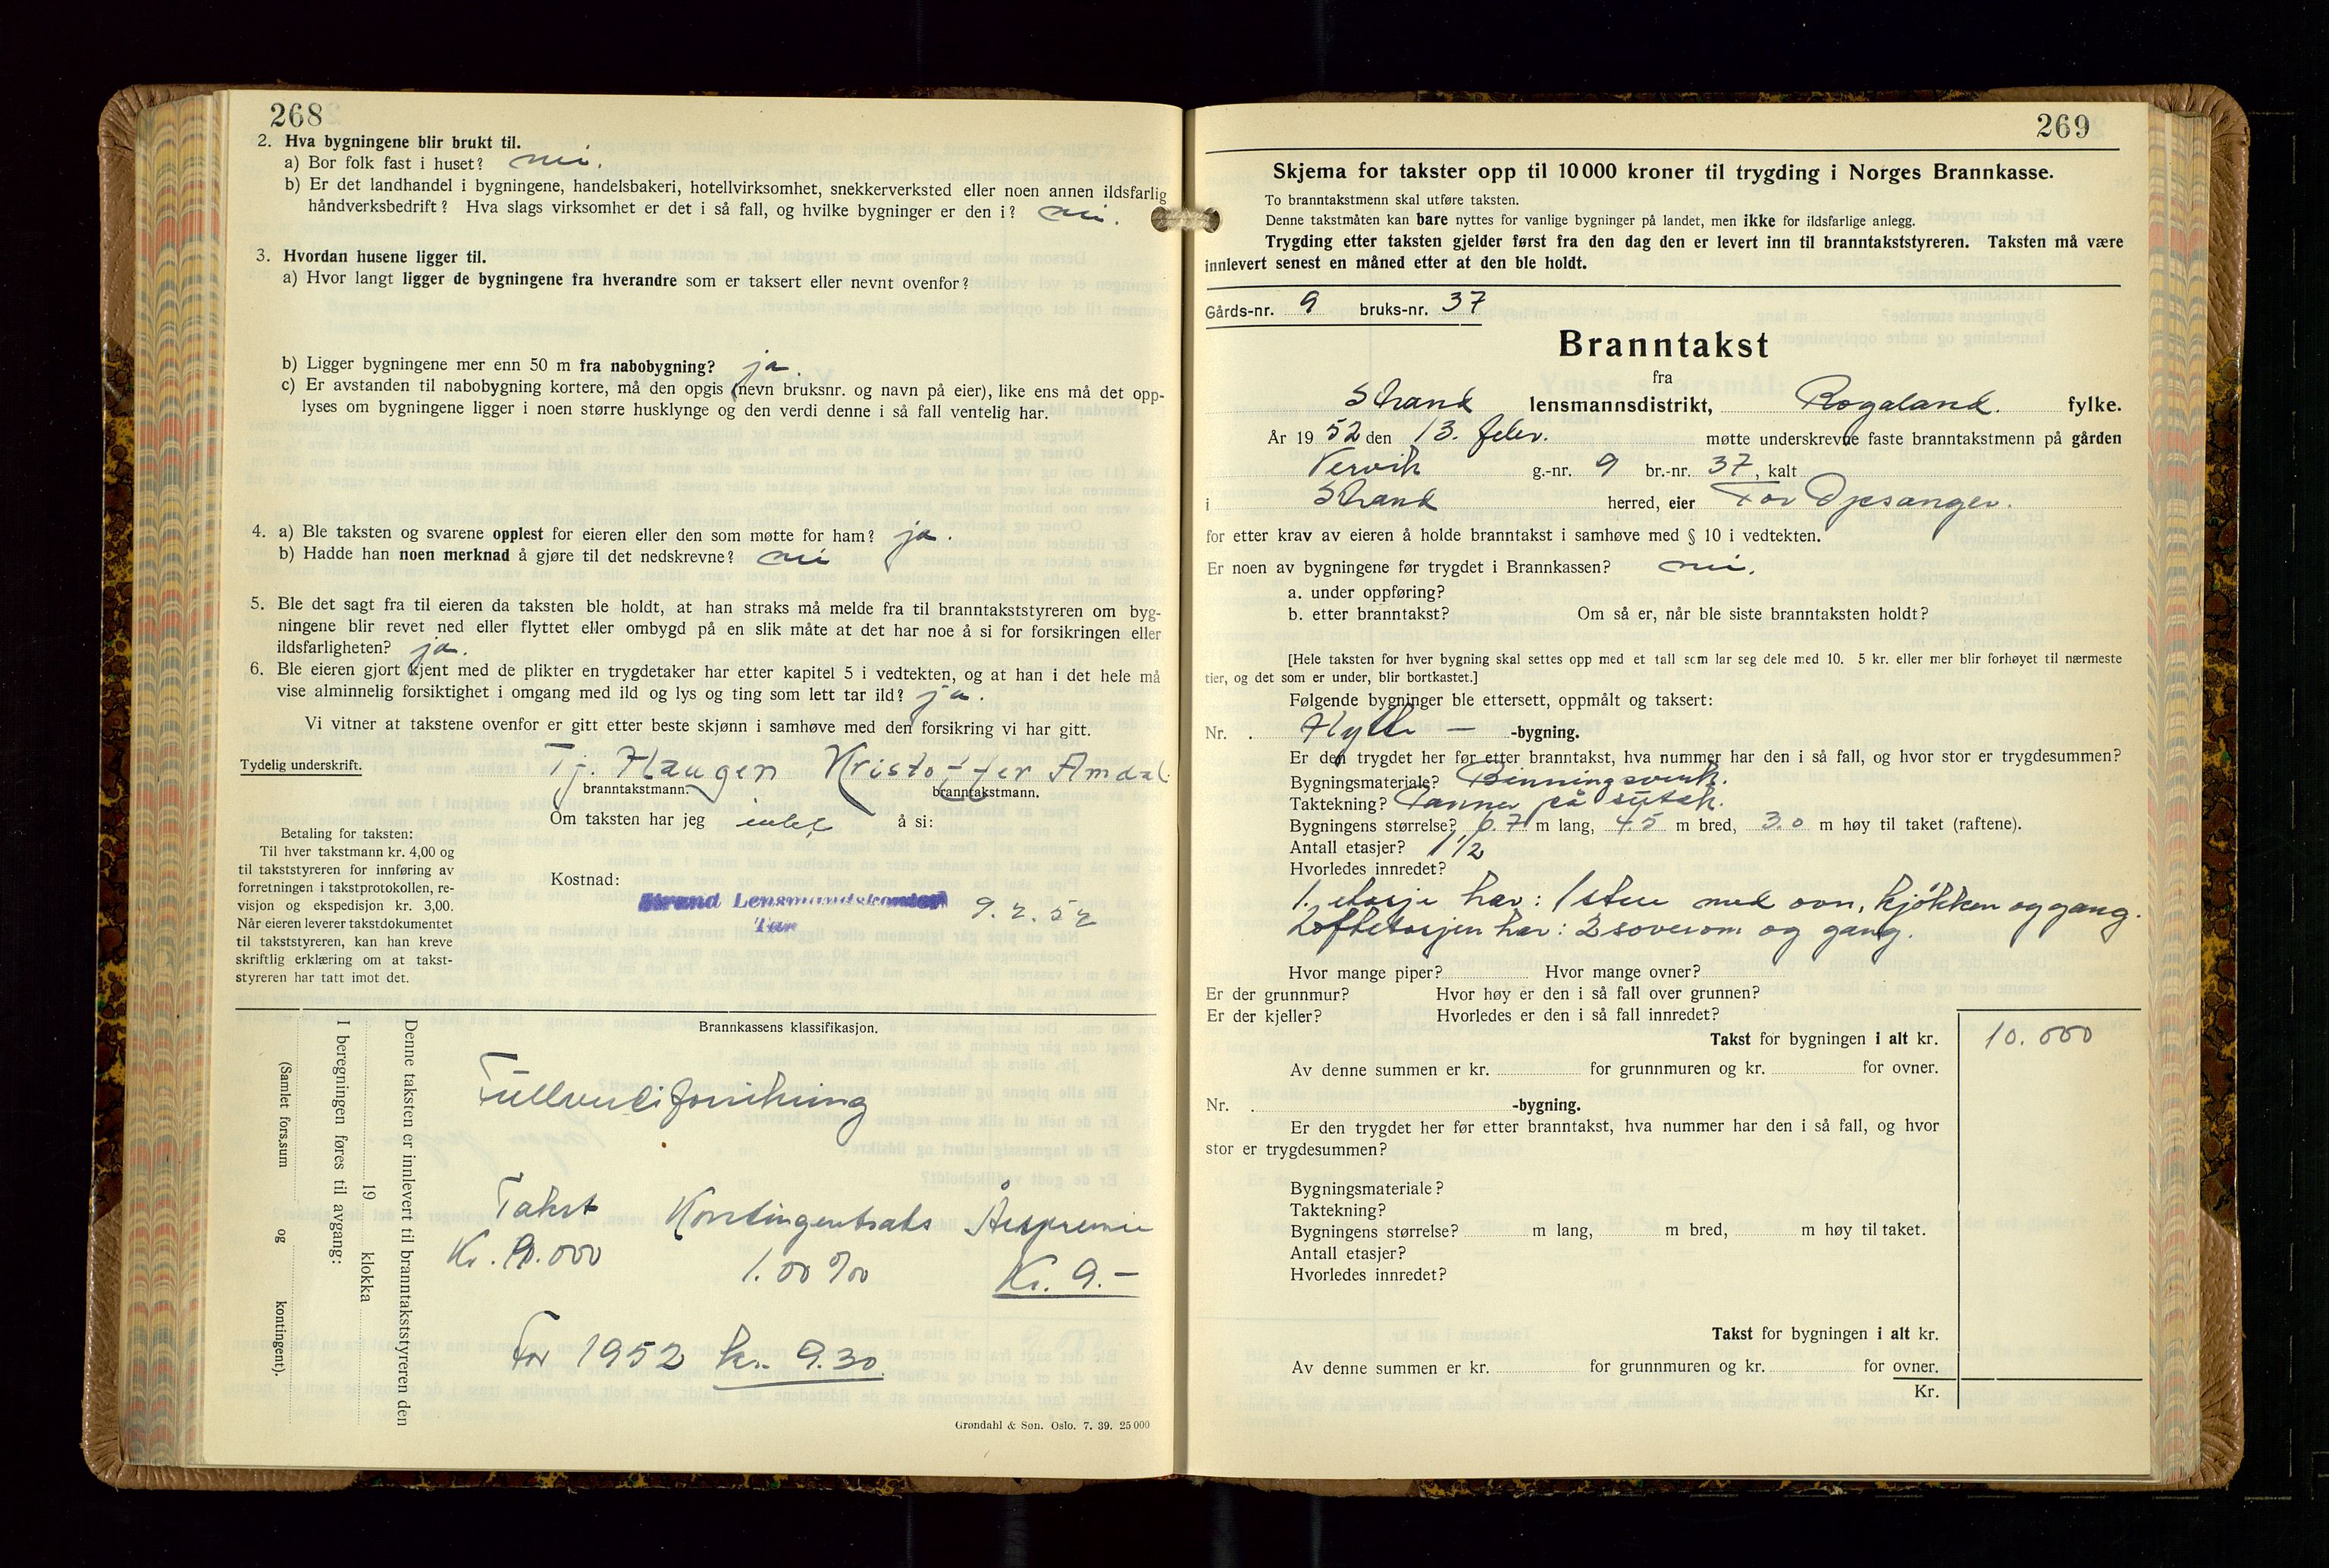 268
2. Hva bygningene blir brukt til.
a) Bor folk fast i huset? nei.
b) Er det landhandel i bygningene, handelsbakeri, hotellvirksomhet, snekkerverksted eller noen annen ildsfarlig
håndverksbedrift? Hva slags virksomhet er det i så fall, og hvilke bygninger er den i? nei.
3. Hvordan husene ligger til.
a) Hvor langt ligger de bygningene fra hverandre som er taksert eller nevnt ovenfor?
b) Ligger bygningene mer enn 50 m fra nabobygning? ja.
c) Er avstanden til nabobygning kortere, må den opgis (nevn bruksnr. og navn på eier), like ens må det opp-
lyses om bygningene ligger i noen større husklynge og den verdi denne i så fall ventelig har.
4. a) Ble taksten og svarene opplest for eieren eller den som møtte for ham? ja.
b) Hadde han noen merknad å gjøre til det nedskrevne? nei
5. Ble det sagt fra til eieren da taksten ble holdt, at han straks må melde fra til branntakststyreren om byg-
ningene blir revet ned eller flyttet eller ombygd på en slik måte at det har noe å si for forsikringen eller
ildsfarligheten? ja.
6. Ble eieren gjort kjent med de plikter en trygdetaker har etter kapitel 5 i vedtekten, og at han i det hele må
vise alminnelig forsiktighet i omgang med ild og lys og ting som lett tar ild? ja.
Vi vitner at takstene ovenfor er gitt etter beste skjønn i samhøve med den forsikring vi har gitt.
Tydelig underskrift. Tj. Haugen Kristoffer Amdal
branntakstmann. branntakstmann.
Om taksten har jeg intet å si:
Betaling for taksten:
Til hver takstmann kr. 4,00 og
til takststyreren for innføring av
forretningen i takstprotokollen, re-
visjon og ekspedisjon kr. 3,00.
Når eieren leverer takstdokumentet
til takststyreren, kan han kreve
skriftlig erklæring om at takst-
styreren har tatt imot det.
Kostnad:
Strand Lensmandskontor
Tau
Denne taksten er innlevert til branntakststyreren den
19 klokka
I beregningen føres til avgang:
(Samlet fors.sum og kontingent).
Brannkassens klassifikasjon.
Fullverdiforsikring
Takst Kontingentsats Årspremie
Kr. 000 1.00 ‰ Kr. 9.-
For 1952 kr. 9.30
Grøndahl & Søn. Oslo. 7. 39. 25 000
269
Skjema for takster opp til 10 000 kroner til trygding i Norges Brannkasse.
To branntakstmenn skal utføre taksten.
Denne takstmåten kan bare nyttes for vanlige bygninger på landet, men ikke for ildsfarlige anlegg.
Trygding etter taksten gjelder først fra den dag den er levert inn til branntakststyreren. Taksten må være
innlevert senest en måned etter at den ble holdt.
Gårds-nr. 9 bruks-nr. 37
Branntakst
fra
Strand lensmannsdistrikt, Rogaland. fylke.
År 1952 den 13. febr. møtte underskrevne faste branntakstmenn på gården
Vervik g.-nr. 9 br.-nr. 37, kalt
i Strand herred, eier Tor Opesanger.
for etter krav av eieren å holde branntakst i samhøve med § 10 i vedtekten.
Er noen av bygningene før trygdet i Brannkassen? nei.
a. under oppføring?
b. etter branntakst? Om så er, når ble siste branntaksten holdt?
[Hele taksten for hver bygning skal settes opp med et tall som lar seg dele med 10. 5 kr. eller mer blir forhøyet til nærmeste
tier, og det som er under, blir bortkastet.]
Følgende bygninger ble ettersett, oppmålt og taksert:
Nr. . Hytte - -bygning.
Er den trygdet her før etter branntakst, hva nummer har den i så fall, og hvor stor er trygdesummen?
Bygningsmateriale? Benningsverk.
Taktekning? Panner på sutak.
Bygningens størrelse? 6.7 m lang, 4.5 m bred, 3.0 m høy til taket (raftene).
Antall etasjer? 1 1/2
Hvorledes innredet?
1. etasje har: 1 stue med ovn, kjøkken og gang.
Loftetasjen har: 2 soverom og gang.
Hvor mange piper? Hvor mange ovner?
Er der grunnmur? Hvor høy er den i så fall over grunnen?
Er der kjeller? Hvorledes er den i så fall innredet?
Takst for bygningen i alt kr. 10.000
Av denne summen er kr. for grunnmuren og kr. for ovner.
Nr. . -bygning.
Er den trygdet her før etter branntakst, hva nummer har den i så fall, og hvor
stor er trygdesummen?
Bygningsmateriale?
Taktekning?
Bygningens størrelse? m lang, m bred, m høy til taket.
Antall etasjer?
Hvorledes innredet?
Takst for bygningen i alt kr.
Av denne summen er kr. for grunnmuren og kr. for ovner.
Kr.